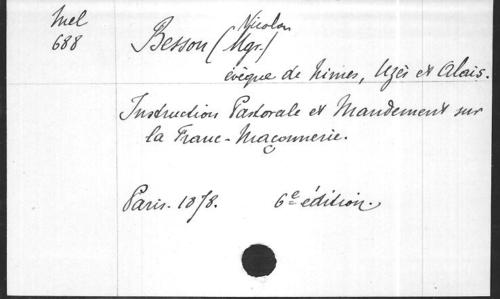 Mel
688
Nicolas
Besson (Mgr.)
évêque de Nimes, Uzès et Alais.
Instruction Pastorale et Mandement sur
la Franc-Maçonnerie.
Paris. 1878. 6e édition.